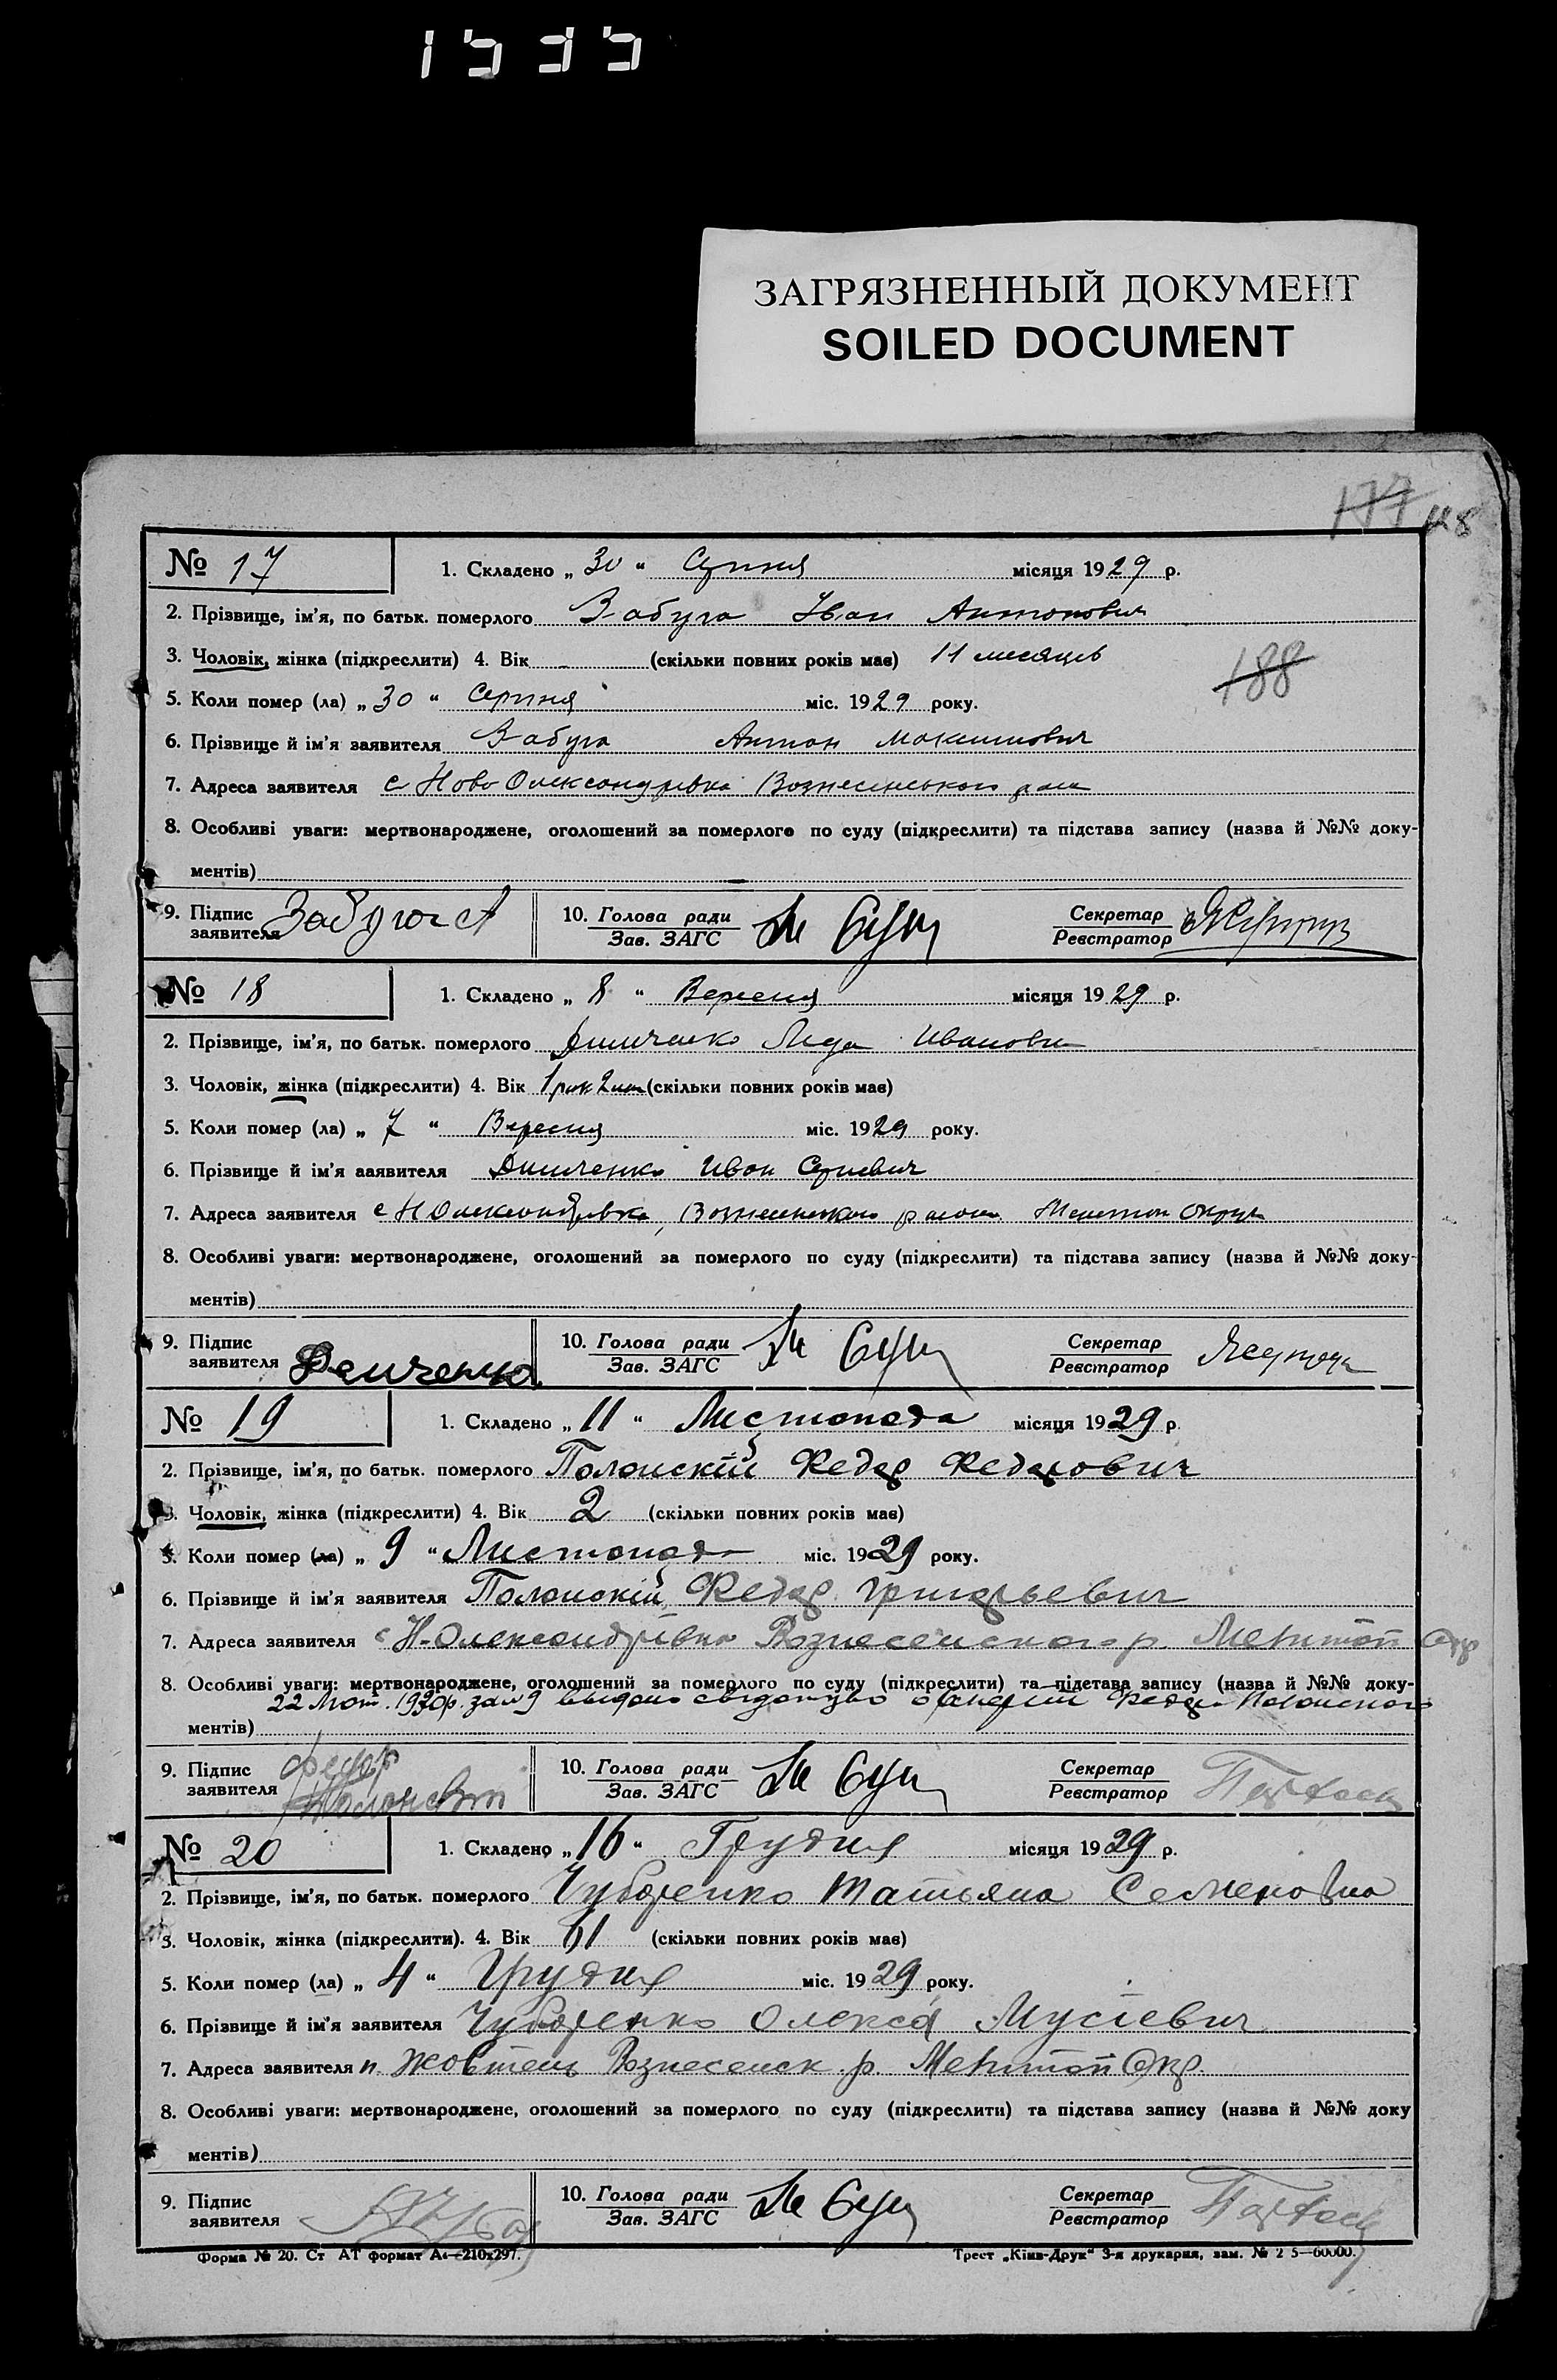 1535
ЗАГРЯЗНЕННЫЙ ДОКУМЕНТ
SOILED DOCUMENT
177
188
№ 17 1. Складено „ 30 “ Серпня місяця 1929 р.
2. Прізвище, ім'я, по батьк. померлого Забуга Іван Антонович
3. Чоловік, жінка (підкреслити) 4. Вік (скільки повних років має) 11 месяцев
5. Коли помер (ла) „ 30 “ Серпня міс. 1929 року.
6. Прізвище й ім'я заявителя Забуга Антон
7. Адреса заявителя с Ново Олександрівка Вознесенського
8. Особливі уваги: мертвонароджене, оголошений за померлого по суду (підкреслити) та підстава запису (назва й №№ доку-
ментів)
9. Підпис заявителя Забуга А 10. Голова ради Зав. ЗАГС Секретар Реєстратор
№ 18 1. Складено „ 8 “ Вересня місяця 1929 р.
2. Прізвище, ім'я, по батьк. померлого Лида Ивановн
3. Чоловік, жінка (підкреслити) 4. Вік 1 рик 2 (скільки повних років має)
5. Коли помер (ла) „ 7 “ Вересня міс. 1929 року.
6. Прізвище й ім'я заявителя Иван
7. Адреса заявителя с Н Олександрівка, района
8. Особливі уваги: мертвонароджене, оголошений за померлого по суду (підкреслити) та підстава запису (назва й №№ доку-
ментів)
9. Підпис заявителя 10. Голова ради Зав. ЗАГС Секретар Реєстратор
№ 19 1. Складено „ 11 “ Листопада місяця 1929 р.
2. Прізвище, ім'я, по батьк. померлого Полонскій Федор Федорович
3. Чоловік, жінка (підкреслити) 4. Вік 2 (скільки повних років має)
5. Коли помер (ла) „ 9 “ Листопада міс. 1929 року.
6. Прізвище й ім'я заявителя Полонскій Федор Григорьевич
7. Адреса заявителя с Н-Олександрівка Вознесенского р. Мелитоп Окр
8. Особливі уваги: мертвонароджене, оголошений за померлого по суду (підкреслити) та підстава запису (назва й №№ доку-
22 Лют. 1930р. за № 9 Федора Полонского
ментів)
9. Підпис заявителя Федор 10. Голова ради Зав. ЗАГС Секретар Реєстратор
№ 20 1. Складено „ 16 “ Грудня місяця 1929 р.
2. Прізвище, ім'я, по батьк. померлого Чубаренко Татьяна Семеновна
3. Чоловік, жінка (підкреслити). 4. Вік 61 (скільки повних років має)
5. Коли помер (ла) „ 4 “ Грудня міс. 1929 року.
6. Прізвище й ім'я заявителя Чубаренко Олекса Мусієвич
7. Адреса заявителя п. Жовтень Вознесенск. р. Мелитоп Окр.
8. Особливі уваги: мертвонароджене, оголошений за померлого по суду (підкреслити) та підстава запису (назва й №№ доку
ментів)
9. Підпис заявителя 10. Голова ради Зав. ЗАГС Секретар Реєстратор
Форма № 20. Ст АТ формат А4—210х297. Трест „Київ-Друк“ 3-я друкарня, зам. № 2 5—60000.